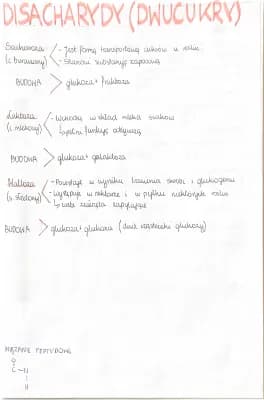 DISACHARYDY (DWUCUKRY)
Sacharoza - Jest formą transportową cukrów u roślin
(c. buraczany) - Stanowi substancję zapasową
BUDOWA > glukoza + fruktoza
Laktoza - Wchodzą w skład mleka ssaków
(c. mlekowy) ↳ pełni funkcję odżywczą
BUDOWA > glukoza + galaktoza
Maltoza - Powstaje w wyniku trawienia skrobi i glikogenu
(c. słodowy) - Występuje w nektarze i w pyłku niektórych roślin
↳ wabi zwierzęta zapylające
BUDOWA > glukoza + glukoza (dwie cząsteczki glukozy)
WIĄZANIE PEPTYDOWE
O
C - N
H